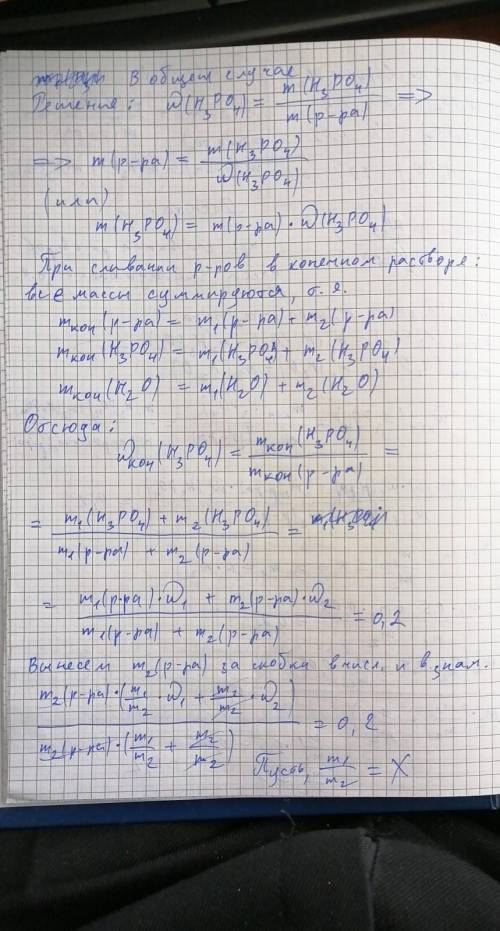 В общем случае
Решение: ω(H₃PO₄) = m(H₃PO₄) / m(р-ра) =>
=> m(р-ра) = m(H₃PO₄) / ω(H₃PO₄)
(или)
m(H₃PO₄) = m(р-ра) · ω(H₃PO₄)
При сливании р-ров в конечном растворе:
все массы суммируются, т.я.
mкон(р-ра) = m₁(р-ра) + m₂(р-ра)
mкон(H₃PO₄) = m₁(H₃PO₄) + m₂(H₃PO₄)
mкон(H₂O) = m₁(H₂O) + m₂(H₂O)
Отсюда:
ωкон(H₃PO₄) = mкон(H₃PO₄) / mкон(р-ра) =
= m₁(H₃PO₄) + m₂(H₃PO₄) / m₁(р-ра) + m₂(р-ра) =
= m₁(р-ра)·ω₁ + m₂(р-ра)·ω₂ / m₁(р-ра) + m₂(р-ра) = 0,2
Вынесем m₂(р-ра) за скобки в числ. и в знам.
m₂(р-ра)·(m₁/m₂ · ω₁ + m₂/m₂ · ω₂) / m₂(р-ра)·(m₁/m₂ + m₂/m₂) = 0,2
Пусть, m₁/m₂ = X